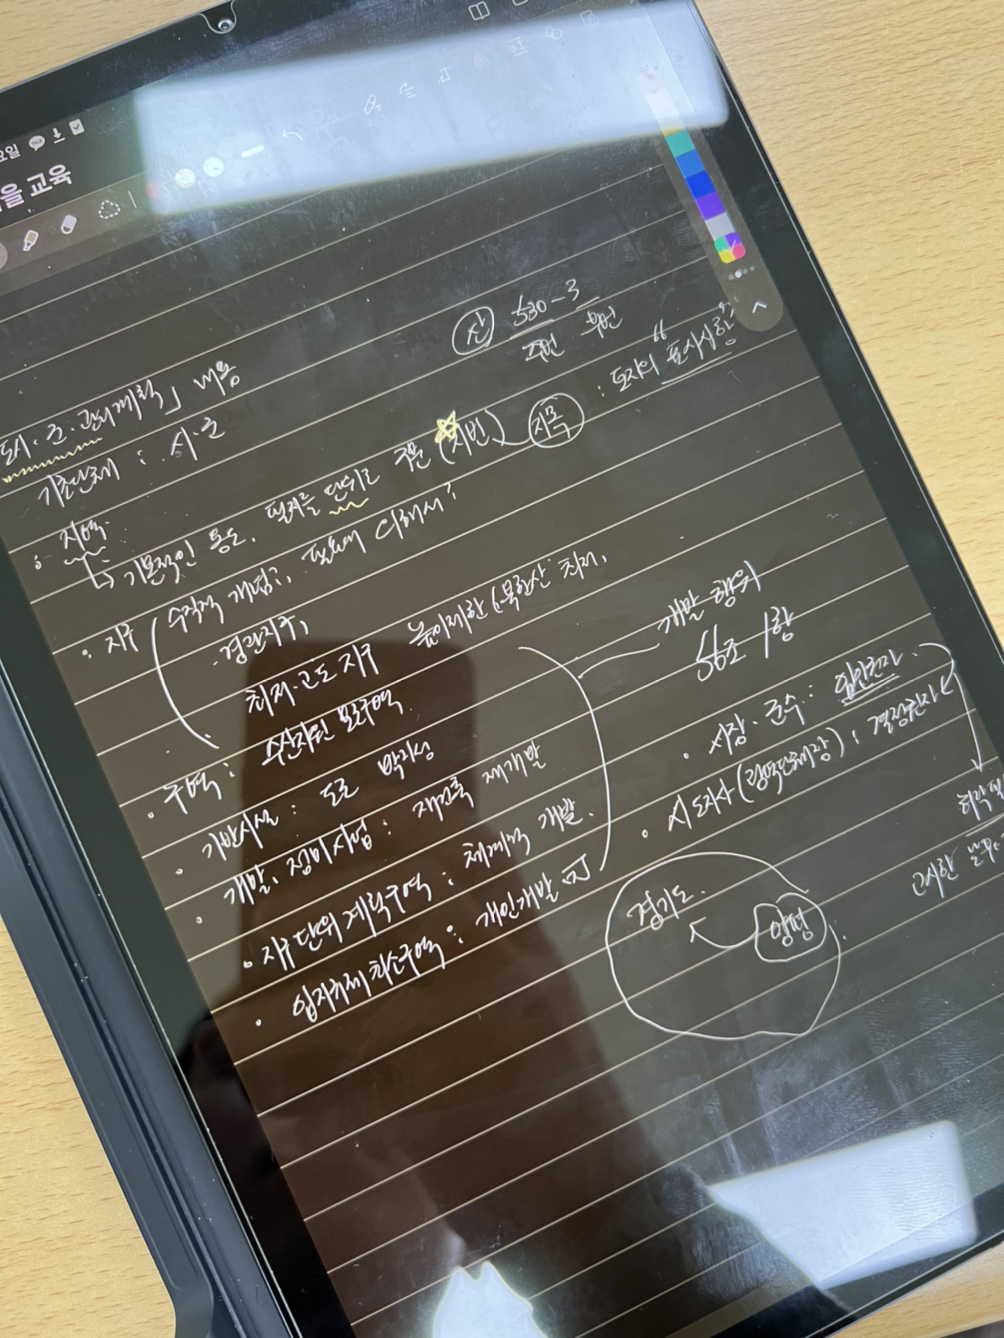 요일
을 교육
산 530-3
주번 부번
도시·군·관리계획」 내용
기초단체 : 시·군
: 지역
↳ 기본적인 용도. 필지를 단위로 구분 (지번) 지목 : 토지의 "표시사항"
· 지구 ( 수직적 개념?, 필요에 의해서?
· 경관지구,
최저·고도 지구 높이제한 (북한산 최저,
· 구역 : 수산자원 보호구역
· 기반시설 : 도로
· 개발, 정비사업 : 재건축 재개발
· 지구단위계획구역 : 체계적 개발.
· 입지규제최소구역 : 개인개발
개발 행위
56조 1항
· 시장·군수 : 입안권자.
· 시도지사 (광역단체장) : 결정권자
경기도.
양평